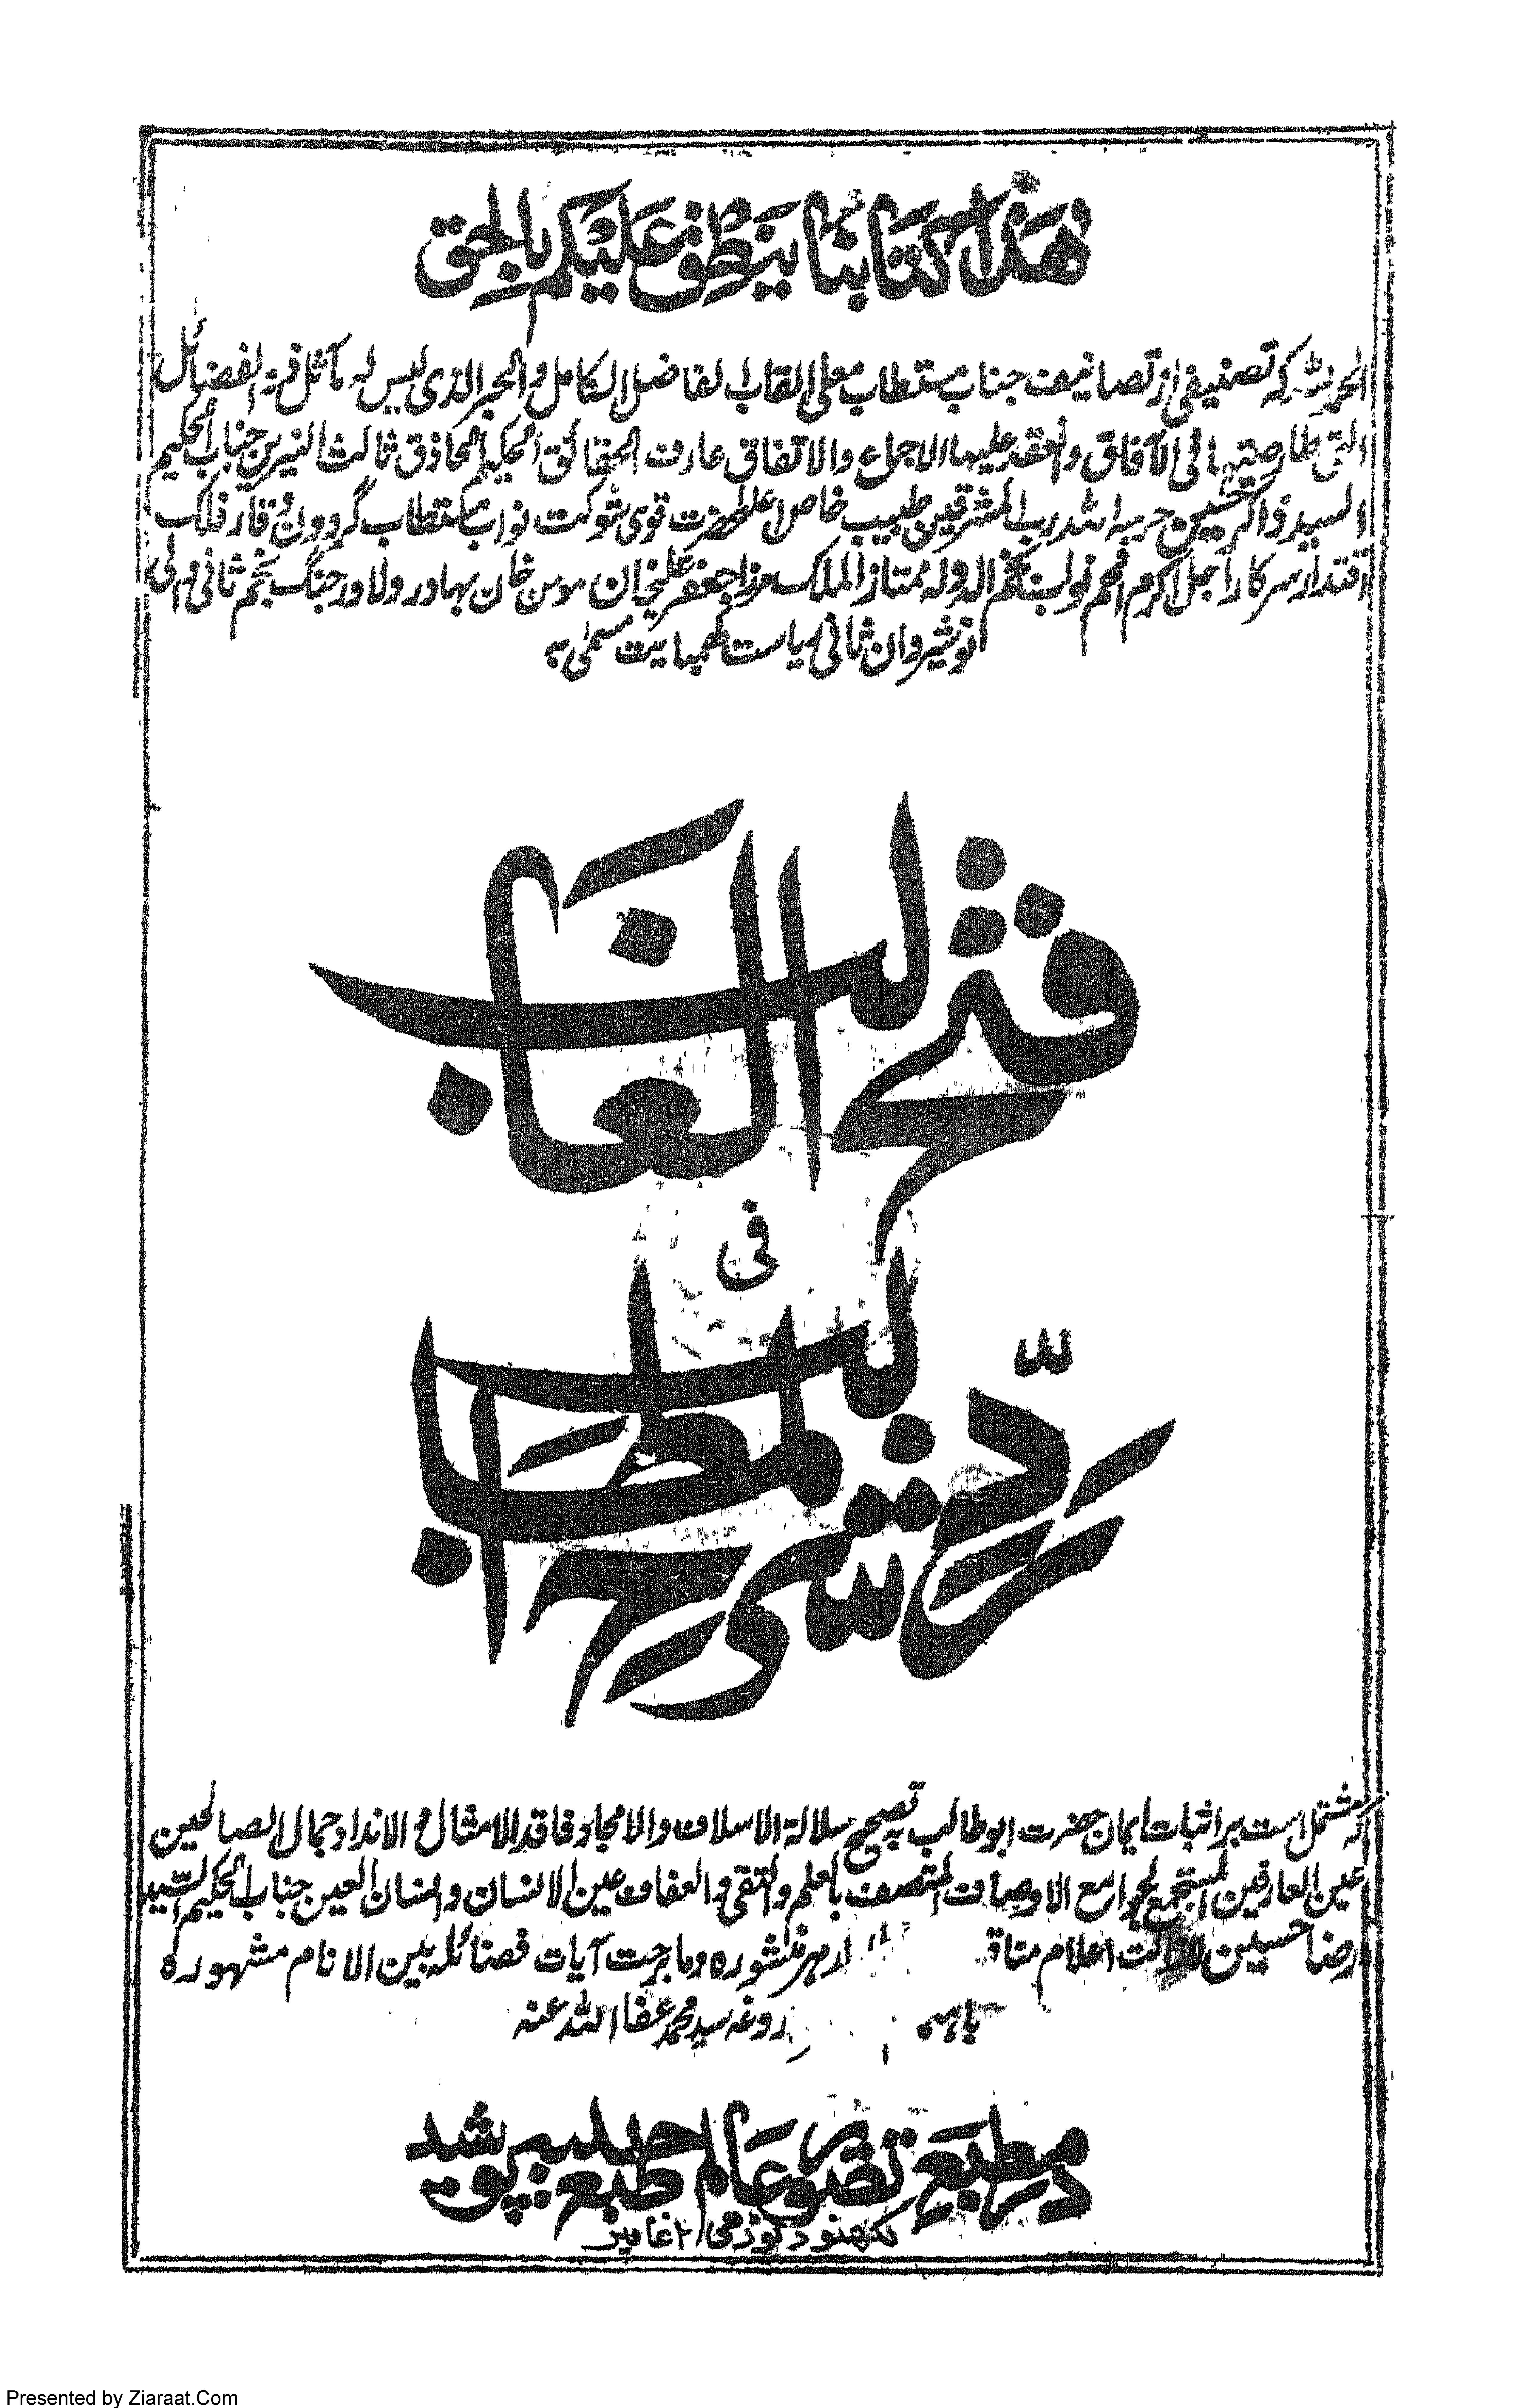 هذا كتابنا ينطق عليكم بالحق
الحمد لله که تصنیفی از تصانیف جناب مستطاب معلی القاب الفاضل الکامل والحبر الذی لیس له مماثل فی الفضائل
التی طار صیتها فی الآفاق وانعقد علیها الاجماع والاتفاق عارف الحقائق الحکیم الحاذق ثالث النیرین جناب الحکیم
السید ذاکر حسین حرسه الله رب المشرقین طبیب خاص اعلحضرت قوی شوکت نواب مستطاب گردون وقار فلک
اقتدار سرکار اجل اکرم افخم نواب نجم الدوله ممتاز الملک مرزا جعفر علیخان مومن خان بهادر دلاور جنگ نجم ثانی والی
نوشیروان ثانی ریاست کهمبایت مسمی به
فتح الغالب
فی
رد شرح المطالب
که مشتمل است بر اثبات ایمان حضرت ابو طالب به تصحیح سلالة الاسلاف والامجاد فاقد الامثال والانداد جمال الصالحین
عین العارفین المستجمع لجوامع الاوصاف المتصف بالعلم والتقی والعفاف عین الانسان وانسان العین جناب الحکیم السید
رضا حسین لا زالت اعلام منشوره وما برحت آیات فضائله بین الانام مشهوره
باهتمام داروغه سید محمد عفا الله عنه
در مطبع تصویر عالم حلیه طبع پوشید
لکهنو
Presented by Ziaraat.Com